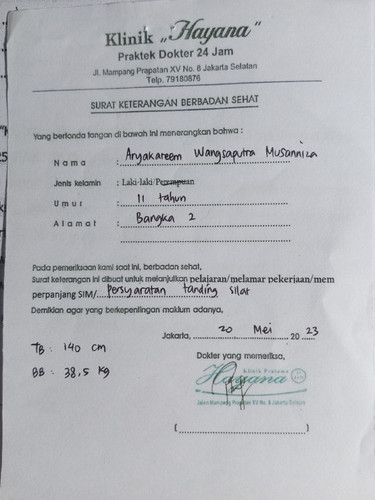 Klinik „Hayana"
Praktek Dokter 24 Jam
Jl. Mampang Prapatan XV No. 8 Jakarta Selatan
Telp. 79180876
SURAT KETERANGAN BERBADAN SEHAT
Yang bertanda tangan di bawah ini menerangkan bahwa :
Nama : Aryakareem Wangsaputra Musanniza
Jenis kelamin : Laki-laki/Perempuan
Umur : 11 tahun
Alamat : Bangka 2
Pada pemeriksaan kami saat ini, berbadan sehat,
Surat keterangan ini dibuat untuk melanjutkan pelajaran/melamar pekerjaan/mem
perpanjang SIM/ Persyaratan tanding silat
Demikian agar yang berkepentingan maklum adanya,
Jakarta, 20 Mei 20 23
TB : 140 cm
Dokter yang memeriksa,
BB : 38,5 kg
Klinik Pratama
Hayana
Jalan Mampang Prapatan XV No. 8 Jakarta Selatan
(....................)